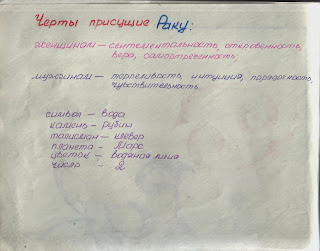 Черты присущие Раку:
женщинам – сентементальность, откровенность,
вера, самоотреченность
мужчинам – терпеливость, интуиция, порядочность,
чувствительность.
символ – вода
камень – рубин
талисман – клевер
планета – Марс
цветок – водяная лилия
число – 2